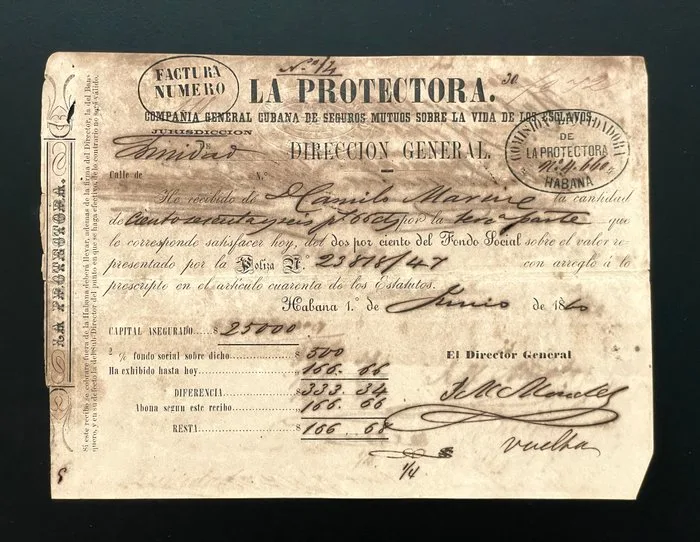 FACTURA
NUMERO
LA PROTECTORA.
COMPAÑIA GENERAL CUBANA DE SEGUROS MUTUOS SOBRE LA VIDA DE LOS ESCLAVOS.
JURISDICCION
Trinidad
DIRECCION GENERAL.
COMISION LIQUIDADORA
DE
LA PROTECTORA
Nº 4.660
HABANA
Calle de N.º
He recibido de D. Camilo la cantidad
de Ciento sesenta y seis ps. 66 cts por la terca parte que
le corresponde satisfacer hoy, del dos por ciento del Fondo Social sobre el valor re-
presentado por la Poliza Nº 23818/47 con arreglo á lo
prescripto en el artículo cuarenta de los Estatutos.
Habana 1.º de Junio de 1860
CAPITAL ASEGURADO.... $ 25000
2 % fondo social sobre dicho.. $ 500
Ha exhibido hasta hoy.... 166. 66
DIFERENCIA........ 333. 34
Abona segun este recibo.... 166. 66
RESTA...... $ 166. 68
El Director General
vuelta
1/4
LA PROTECTORA.
Si este recibo se cobrare fuera de la Habana deberá llevar, ademas de la firma del Director, la del Ban-
quero, y en su defecto la del Sub-Director del punto en que se haga efectivo, de lo contrario no será válido.